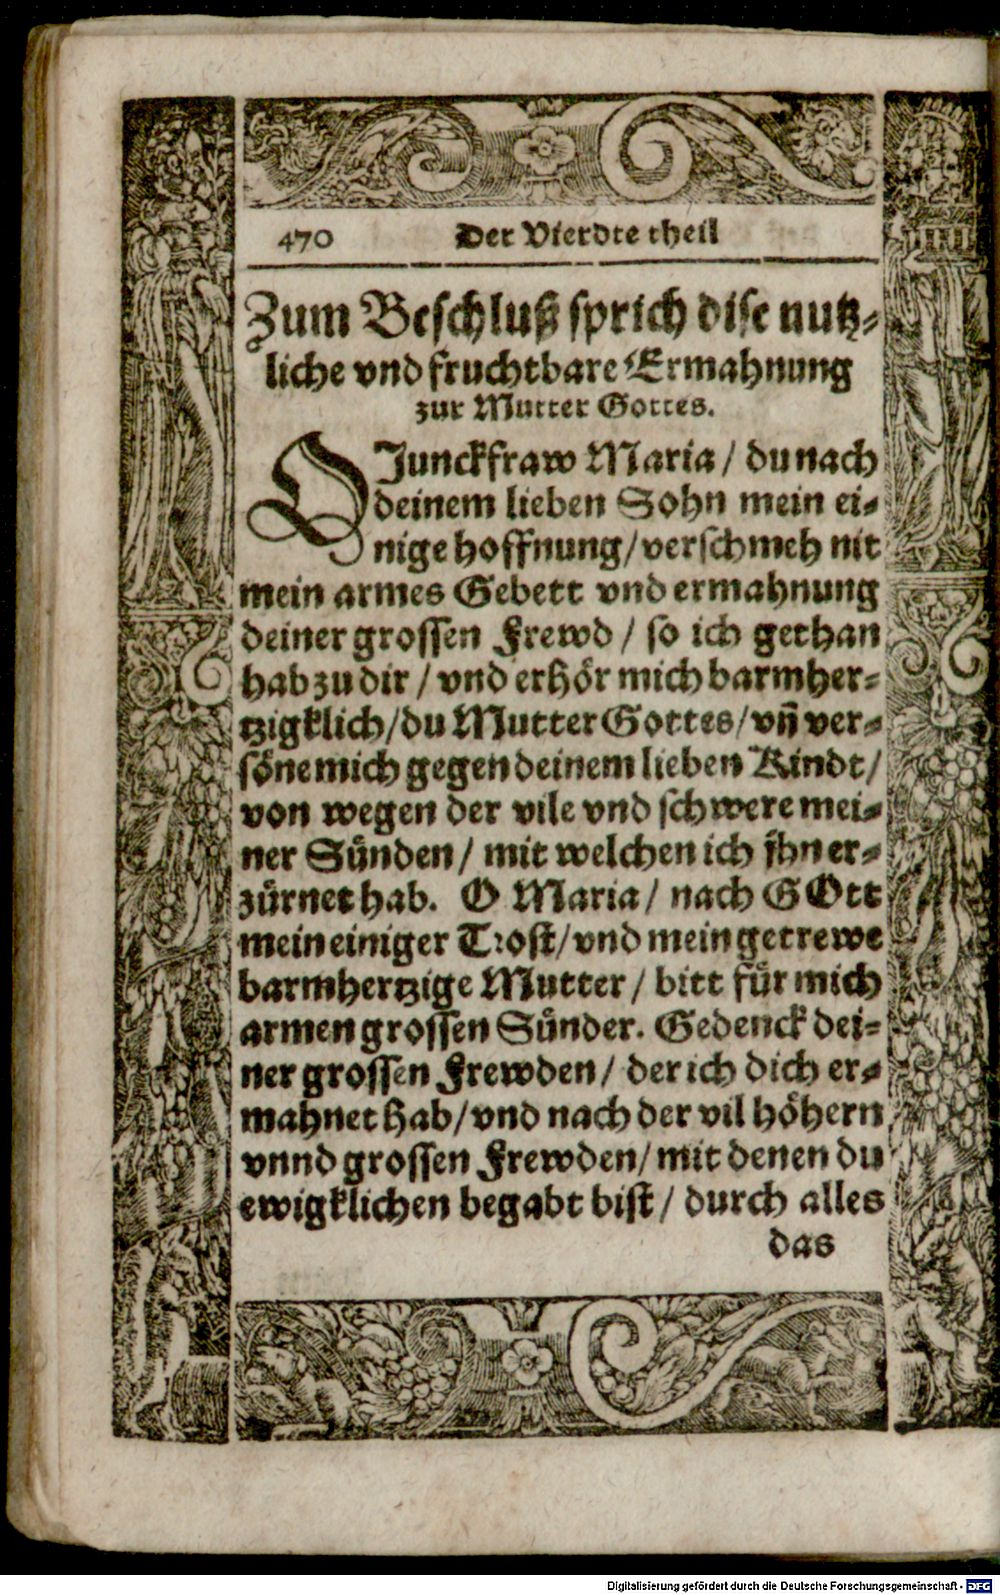 470 Der Vierdte theil
Zum Beschluß sprich dise nutz-
liche vnd fruchtbare Ermahnung
zur Mutter Gottes.
O Junckfraw Maria / du nach
deinem lieben Sohn mein ei-
nige hoffnung / verschmeh nit
mein armes Gebett vnd ermahnung
deiner grossen Frewd / so ich gethan
hab zu dir / vnd erhör mich barmher-
tzigklich / du Mutter Gottes / vñ ver-
söne mich gegen deinem lieben Kindt /
von wegen der vile vnd schwere mei-
ner Sünden / mit welchen ich ihn er-
zürnet hab. O Maria / nach GOtt
mein einiger Trost / vnd mein getrewe
barmhertzige Mutter / bitt für mich
armen grossen Sünder. Gedenck dei-
ner grossen Frewden / der ich dich er-
mahnet hab / vnd nach der vil höhern
vnnd grossen Frewden / mit denen du
ewigklichen begabt bist / durch alles
das
Digitalisierung gefördert durch die Deutsche Forschungsgemeinschaft - DFG